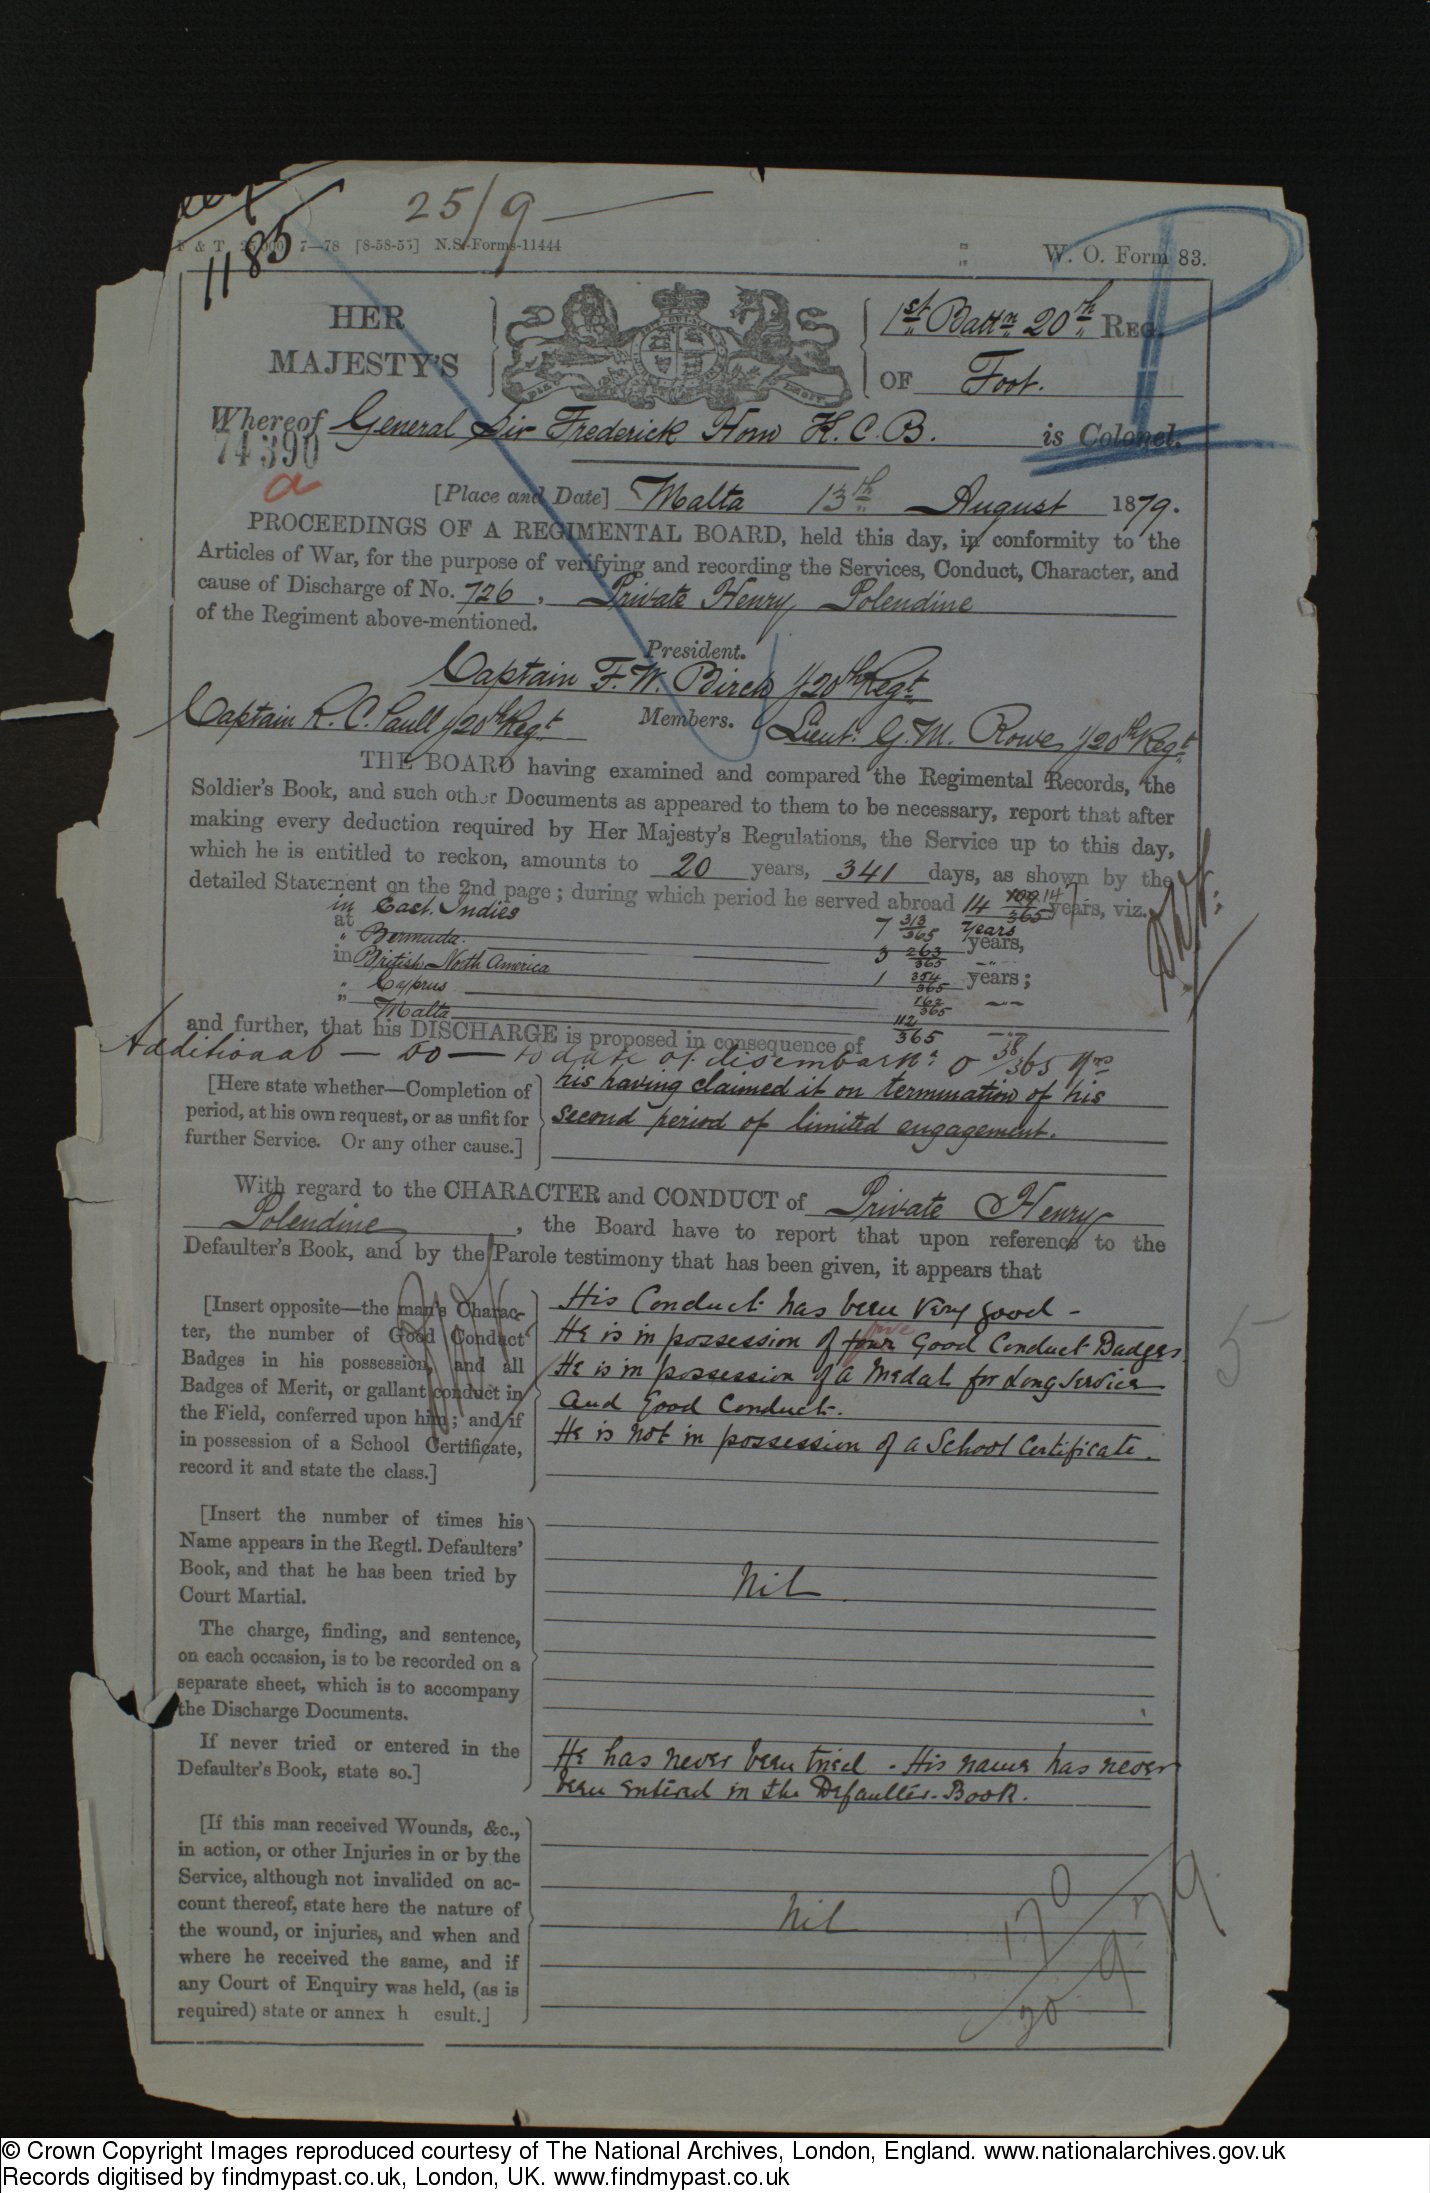 25/9
1185
F & T 25,000 7—78 [8-58-55] N.S.-Forms-11444
W. O. Form 83.
HER
MAJESTY'S
1st Battn 20th REG.
OF Foot.
Whereof General Sir Frederick Horn K.C.B. is Colonel.
74390
a
[Place and Date] Malta 13th August 1879.
PROCEEDINGS OF A REGIMENTAL BOARD, held this day, in conformity to the
Articles of War, for the purpose of verifying and recording the Services, Conduct, Character, and
cause of Discharge of No. 726, Private Henry Polendine
of the Regiment above-mentioned.
President.
Captain F. W. Birch 1/20th Regt
Members.
Captain R. C. Paull 1/20th Regt Lieut. G. M. Rowe 1/20th Regt
THE BOARD having examined and compared the Regimental Records, the
Soldier's Book, and such other Documents as appeared to them to be necessary, report that after
making every deduction required by Her Majesty's Regulations, the Service up to this day,
which he is entitled to reckon, amounts to 20 years, 341 days, as shown by the
detailed Statement on the 2nd page; during which period he served abroad 14 109/365 years, viz.
in East Indies 7 313/365 years
at " Bermuda 3 263/365 years,
in British North America 1 354/365 years;
" Cyprus 162/365 -"-
" Malta 112/365 -"-
and further, that his DISCHARGE is proposed in consequence of
Additional — Do — to date of disembarkn: 0 38/365 yrs
[Here state whether—Completion of
period, at his own request, or as unfit for
further Service. Or any other cause.]
his having claimed it on termination of his
second period of limited engagement.
With regard to the CHARACTER and CONDUCT of Private Henry
Polendine, the Board have to report that upon reference to the
Defaulter's Book, and by the Parole testimony that has been given, it appears that
[Insert opposite—the man's Charac-
ter, the number of Good Conduct
Badges in his possession, and all
Badges of Merit, or gallant conduct in
the Field, conferred upon him; and if
in possession of a School Certificate,
record it and state the class.]
His Conduct has been very good -
He is in possession of four five Good Conduct Badges.
He is in possession of a Medal for Long Service
and Good Conduct.
He is not in possession of a School Certificate.
5
[Insert the number of times his
Name appears in the Regtl. Defaulters'
Book, and that he has been tried by
Court Martial.
The charge, finding, and sentence,
on each occasion, is to be recorded on a
separate sheet, which is to accompany
the Discharge Documents.
If never tried or entered in the
Defaulter's Book, state so.]
Nil.
He has never been tried - His name has never
been entered in the Defaulter-Book.
[If this man received Wounds, &c.,
in action, or other Injuries in or by the
Service, although not invalided on ac-
count thereof, state here the nature of
the wound, or injuries, and when and
where he received the same, and if
any Court of Enquiry was held, (as is
required) state or annex h esult.]
Nil
170
30 9 79
© Crown Copyright Images reproduced courtesy of The National Archives, London, England. www.nationalarchives.gov.uk
Records digitised by findmypast.co.uk, London, UK. www.findmypast.co.uk